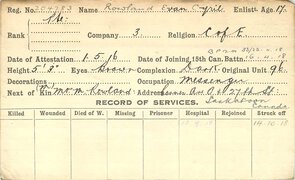 Reg. No. 204783 Name Rowland Evan Cyril Enlistt. Age 17
Rank Pte. Company 3 Religion C of E
Date of Attestation 1.5.16 Date of Joining 15th Can. Battn.
Height 5' 3" Eyes Brown Complexion Dark Original Unit 96
Decorations Occupation Messenger
Next of Kin Mrs M Rowland Address Corner Ave O & 27th St
RECORD OF SERVICES. Saskatoon
Canada
Killed Wounded Died of W. Missing Prisoner Hospital Rejoined Struck off
14-10-18